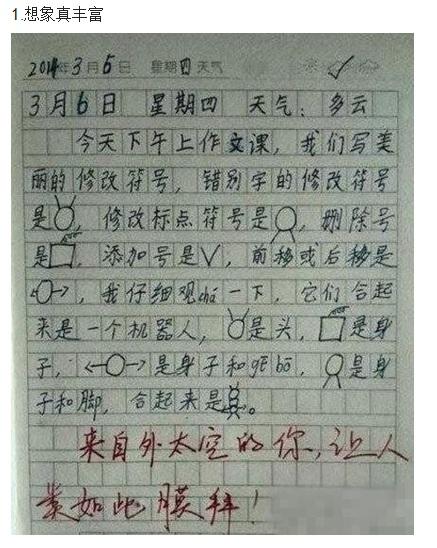 1.想象真丰富
2014年3月6日 星期四天气
3月6日 星期四 天气：多云
今天下午上作文课，我们写美
丽的修改符号，错别字的修改符号
是 修改标点符号是 ，删除号
是 ，添加号是V，前移或后移是
，我仔细观chá一下，它们合起
来是一个机器人， 是头， 是身
子， 是身子和gē bō， 是身
子和脚，合起来是 。
来自外太空的你，让人
如此膜拜！